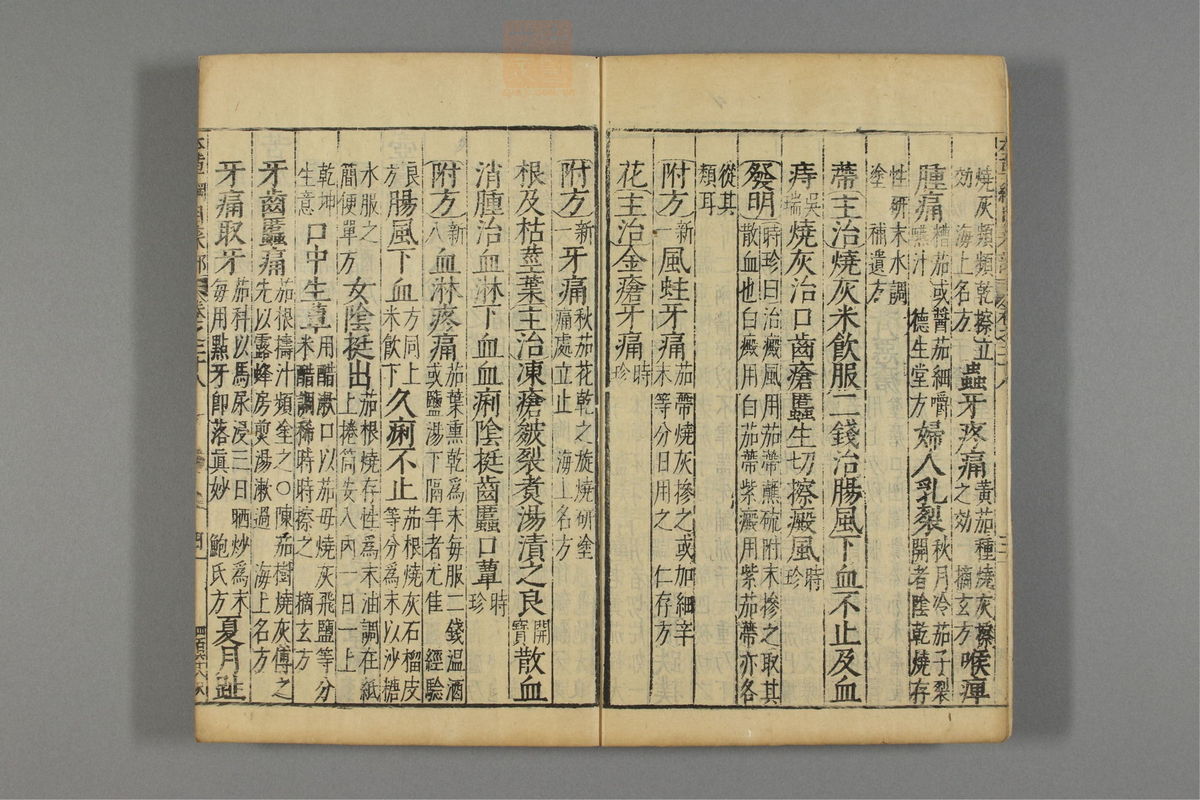 燒灰類類乾擦立效海上名方 蟲牙疼痛 黃茄種燒灰擦之效摘玄方 喉痺
腫痛 糟茄或醬茄細嚼嚥汁德生堂方 婦人乳裂 秋月冷茄子裂開者陰乾燒存
性研末水調塗補遺方
蒂主治燒灰米飲服二錢治腸風下血不止及血
痔 吳瑞 燒灰治口齒瘡䘌生切擦癜風 時珍
發明 時珍曰治癜風用茄蒂蘸硫附末摻之取其散血也白癜用白茄蒂紫癜用紫茄蒂亦各
從其類耳
附方 新一 風蛀牙痛 茄蒂燒灰摻之或加細辛末等分日用之仁存方
花主治金瘡牙痛 時珍
附方 新一 牙痛 秋茄花乾之旋燒研塗痛處立止海上名方
根及枯莖葉主治凍瘡皴裂煮湯漬之良 開寶 散血
消腫治血淋下血血痢陰挺齒䘌口蕈 時珍
附方 新八 血淋疼痛 茄葉熏乾為末每服二錢溫酒或鹽湯下隔年者尤佳經驗
良方 腸風下血 方同上米飲下 久痢不止 茄根燒灰石榴皮等分為末以沙糖
水服之簡便單方 女陰挺出 茄根燒存性為末油調在紙上捲筒安入內一日一上
乾坤生意 口中生蕈 用醋漱口以茄母燒灰飛鹽等分米醋調稀時時擦之摘玄方
牙齒䘌痛 茄根擣汁頻塗之○陳茄樹燒灰傅之先以露蜂房煎湯漱過海上名方
牙痛取牙 茄科以馬尿浸三日晒炒為末每用點牙即落眞妙鮑氏方 夏月趾